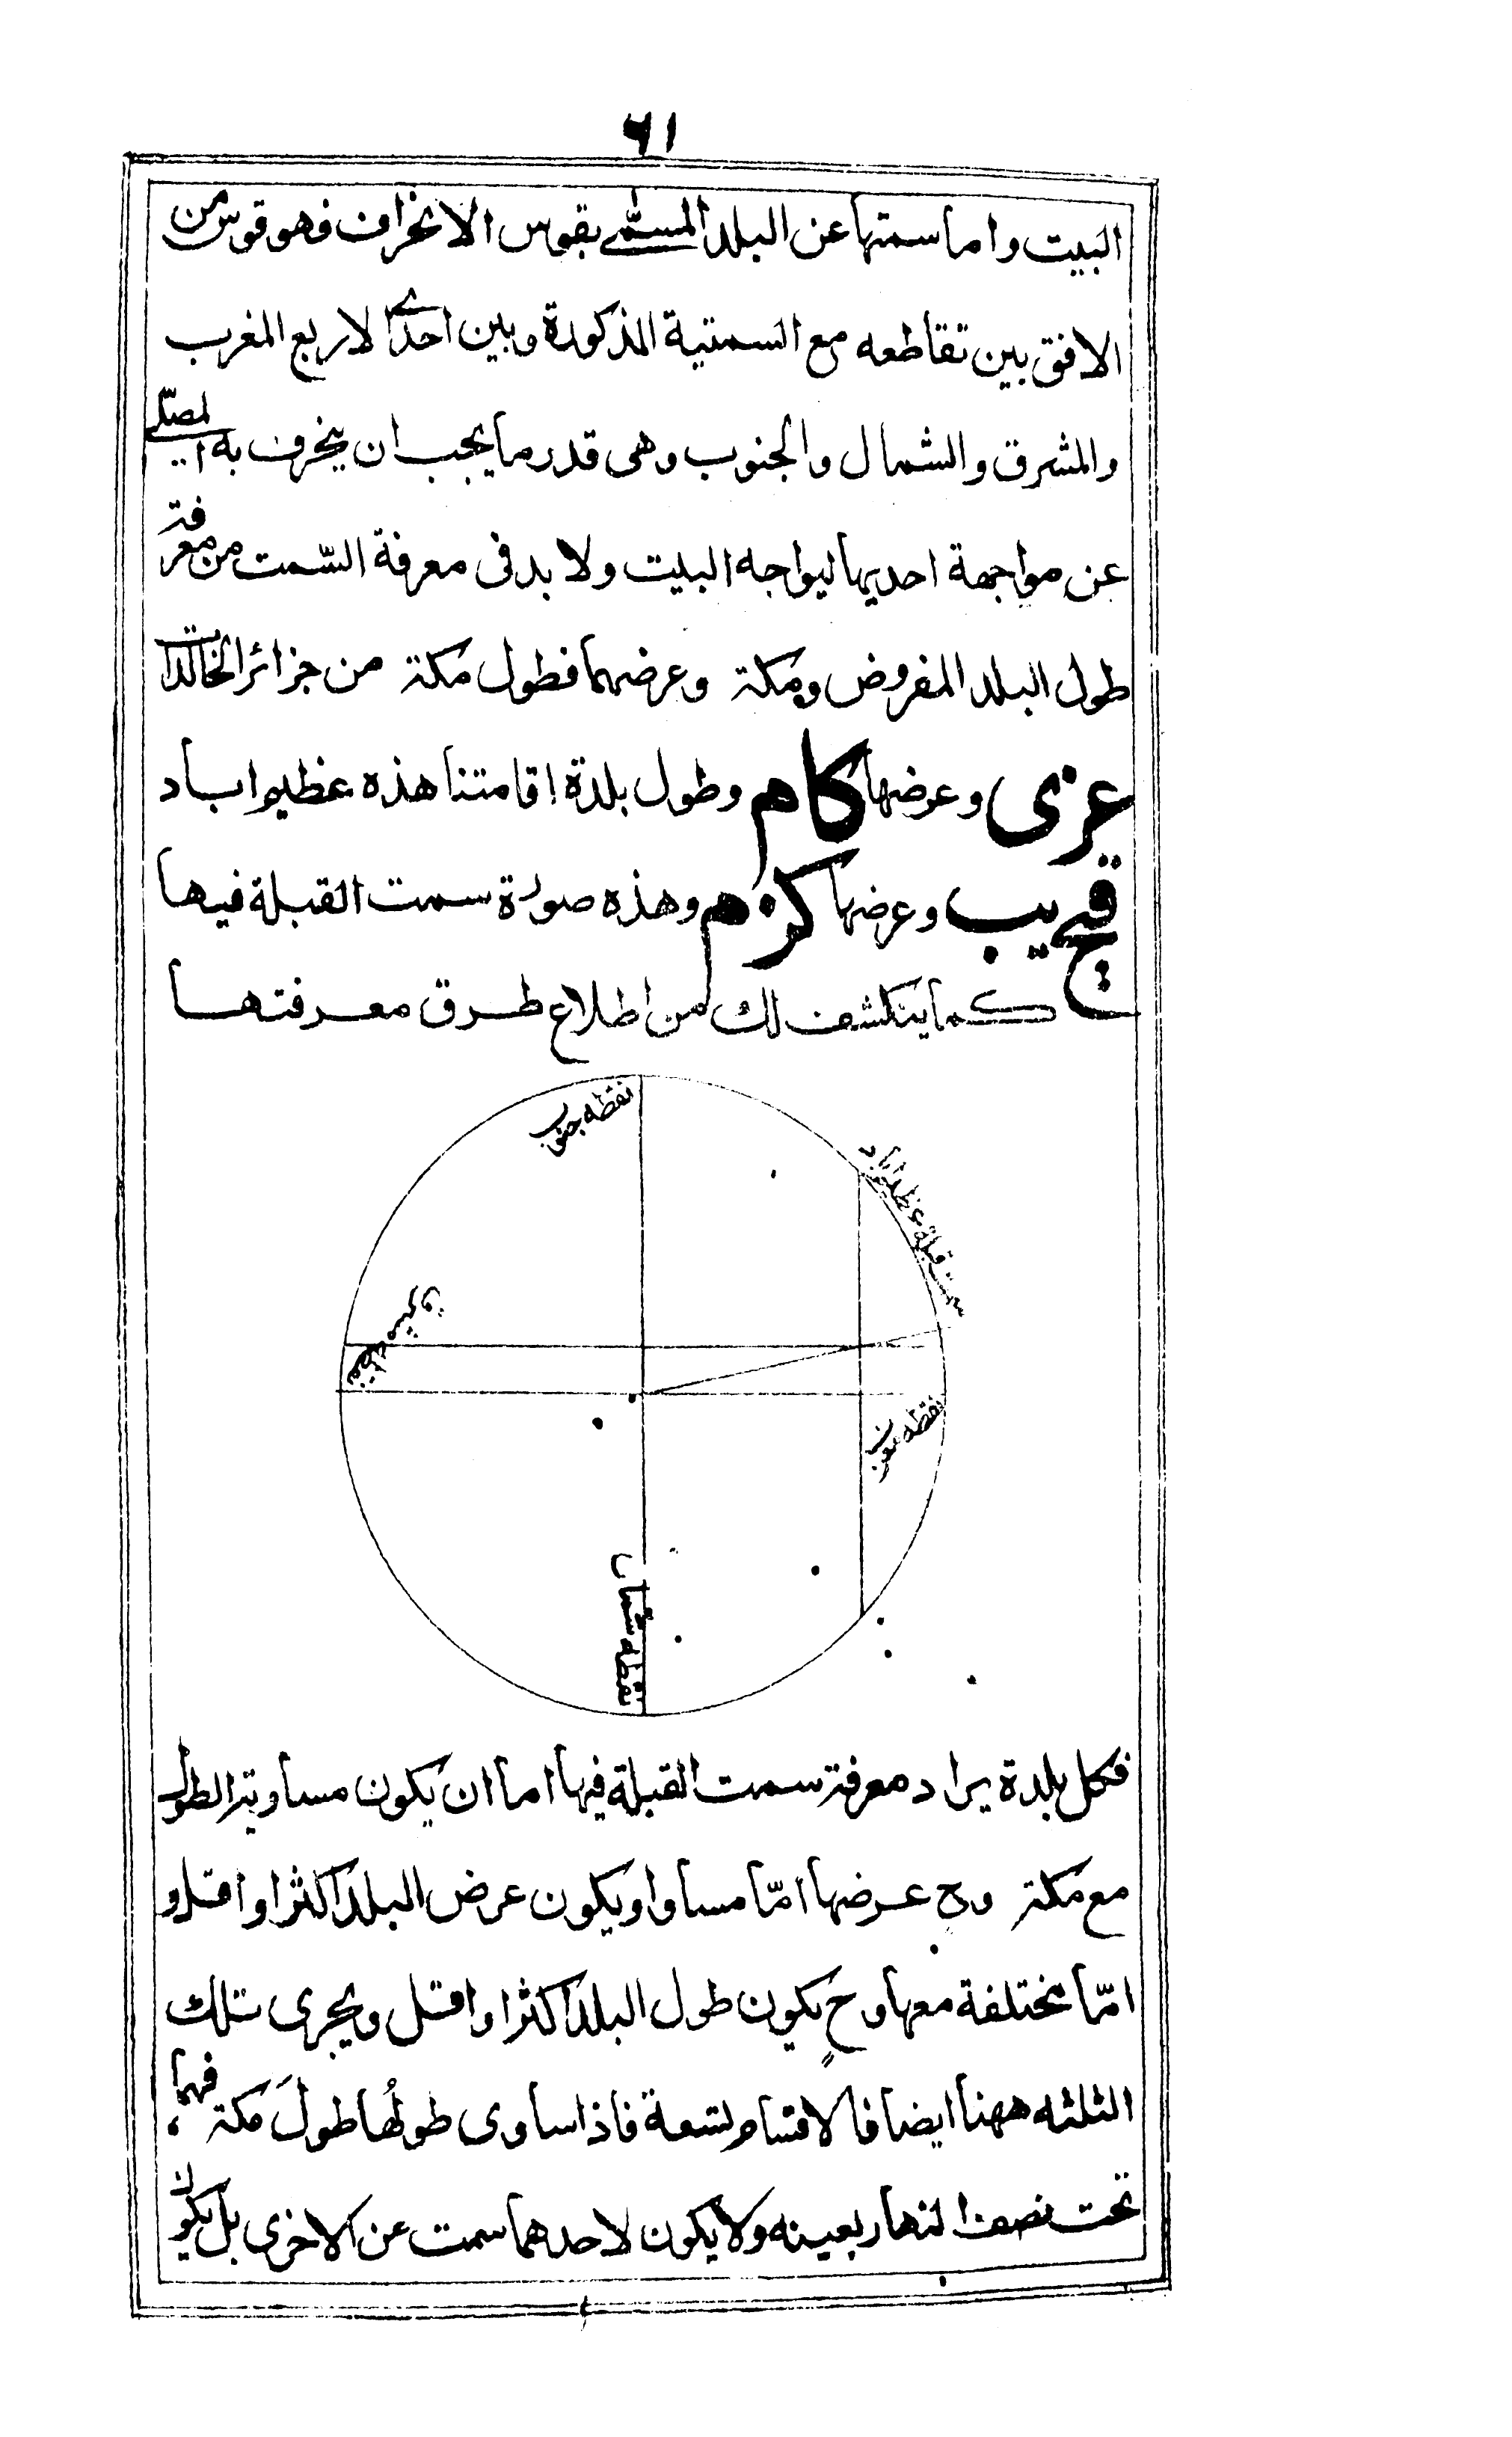 ٦١
البيت واما سمتها عن البلد المسمى بقوس الانحراف فهو قوس من
الافق بين تقاطعه مع السمتية المذكورة وبين احدى الاربع المغرب
والمشرق والشمال والجنوب وهى قدر ما يجب ان ينحرف به المصلى
عن مواجهة احديها ليواجه البيت ولا بد فى معرفة السّمت من معرفة
طول البلد المفروض ومكة وعرضهما فطول مكة من جزائر الخالدات
عزى وعرضها كام وطول بلدة اقامتنا هذه عظيم اباد
قيح يب وعرضها كزم وهذه صورة سمت القبلة فيها
كما ينكشف لك من اطلاع طرق معرفتها
نقطه جنوب
سمت قبلة عظيماباد
نقطه مشرق
نقطه مغرب
نقطه شمال
فكل بلدة يراد معرفة سمت القبلة فيها اما ان يكون مساوية الطول
مع مكة وح عرضها امّا مساو او يكون عرض البلد اكثر او اقل و
امّا مختلفة معها وح يكون طول البلد اكثر او اقل ويجرى تلك
الثلثه ههنا ايضا فالاقسام تسعة فاذا ساوى طولُها طولَ مكة فهما
تحت نصف النهار بعينه ولا يكون لاحدهما سمت عن الاخرى بل يكون